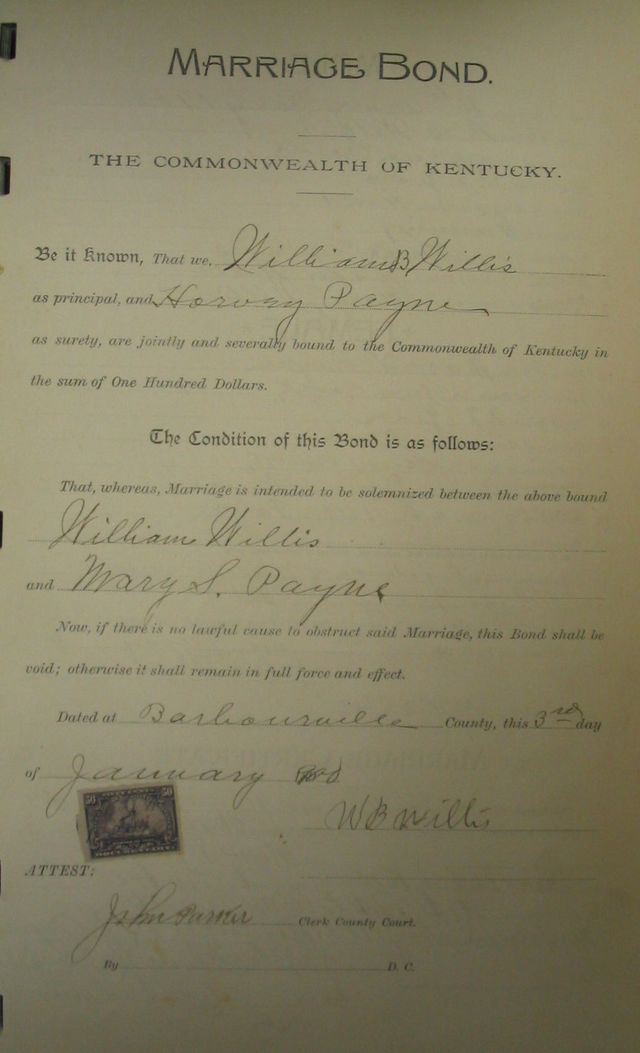 MARRIAGE BOND.
THE COMMONWEALTH OF KENTUCKY.
Be it Known, That we, William B Willis
as principal, and Harvey Payne
as surety, are jointly and severally bound to the Commonwealth of Kentucky in
the sum of One Hundred Dollars.
The Condition of this Bond is as follows:
That, whereas, Marriage is intended to be solemnized between the above bound
William Willis
and Mary S. Payne
Now, if there is no lawful cause to obstruct said Marriage, this Bond shall be
void; otherwise it shall remain in full force and effect.
Dated at Barbourville County, this 3rd day
of January
50 50
W B Willis
ATTEST:
John Parker Clerk County Court.
By D. C.